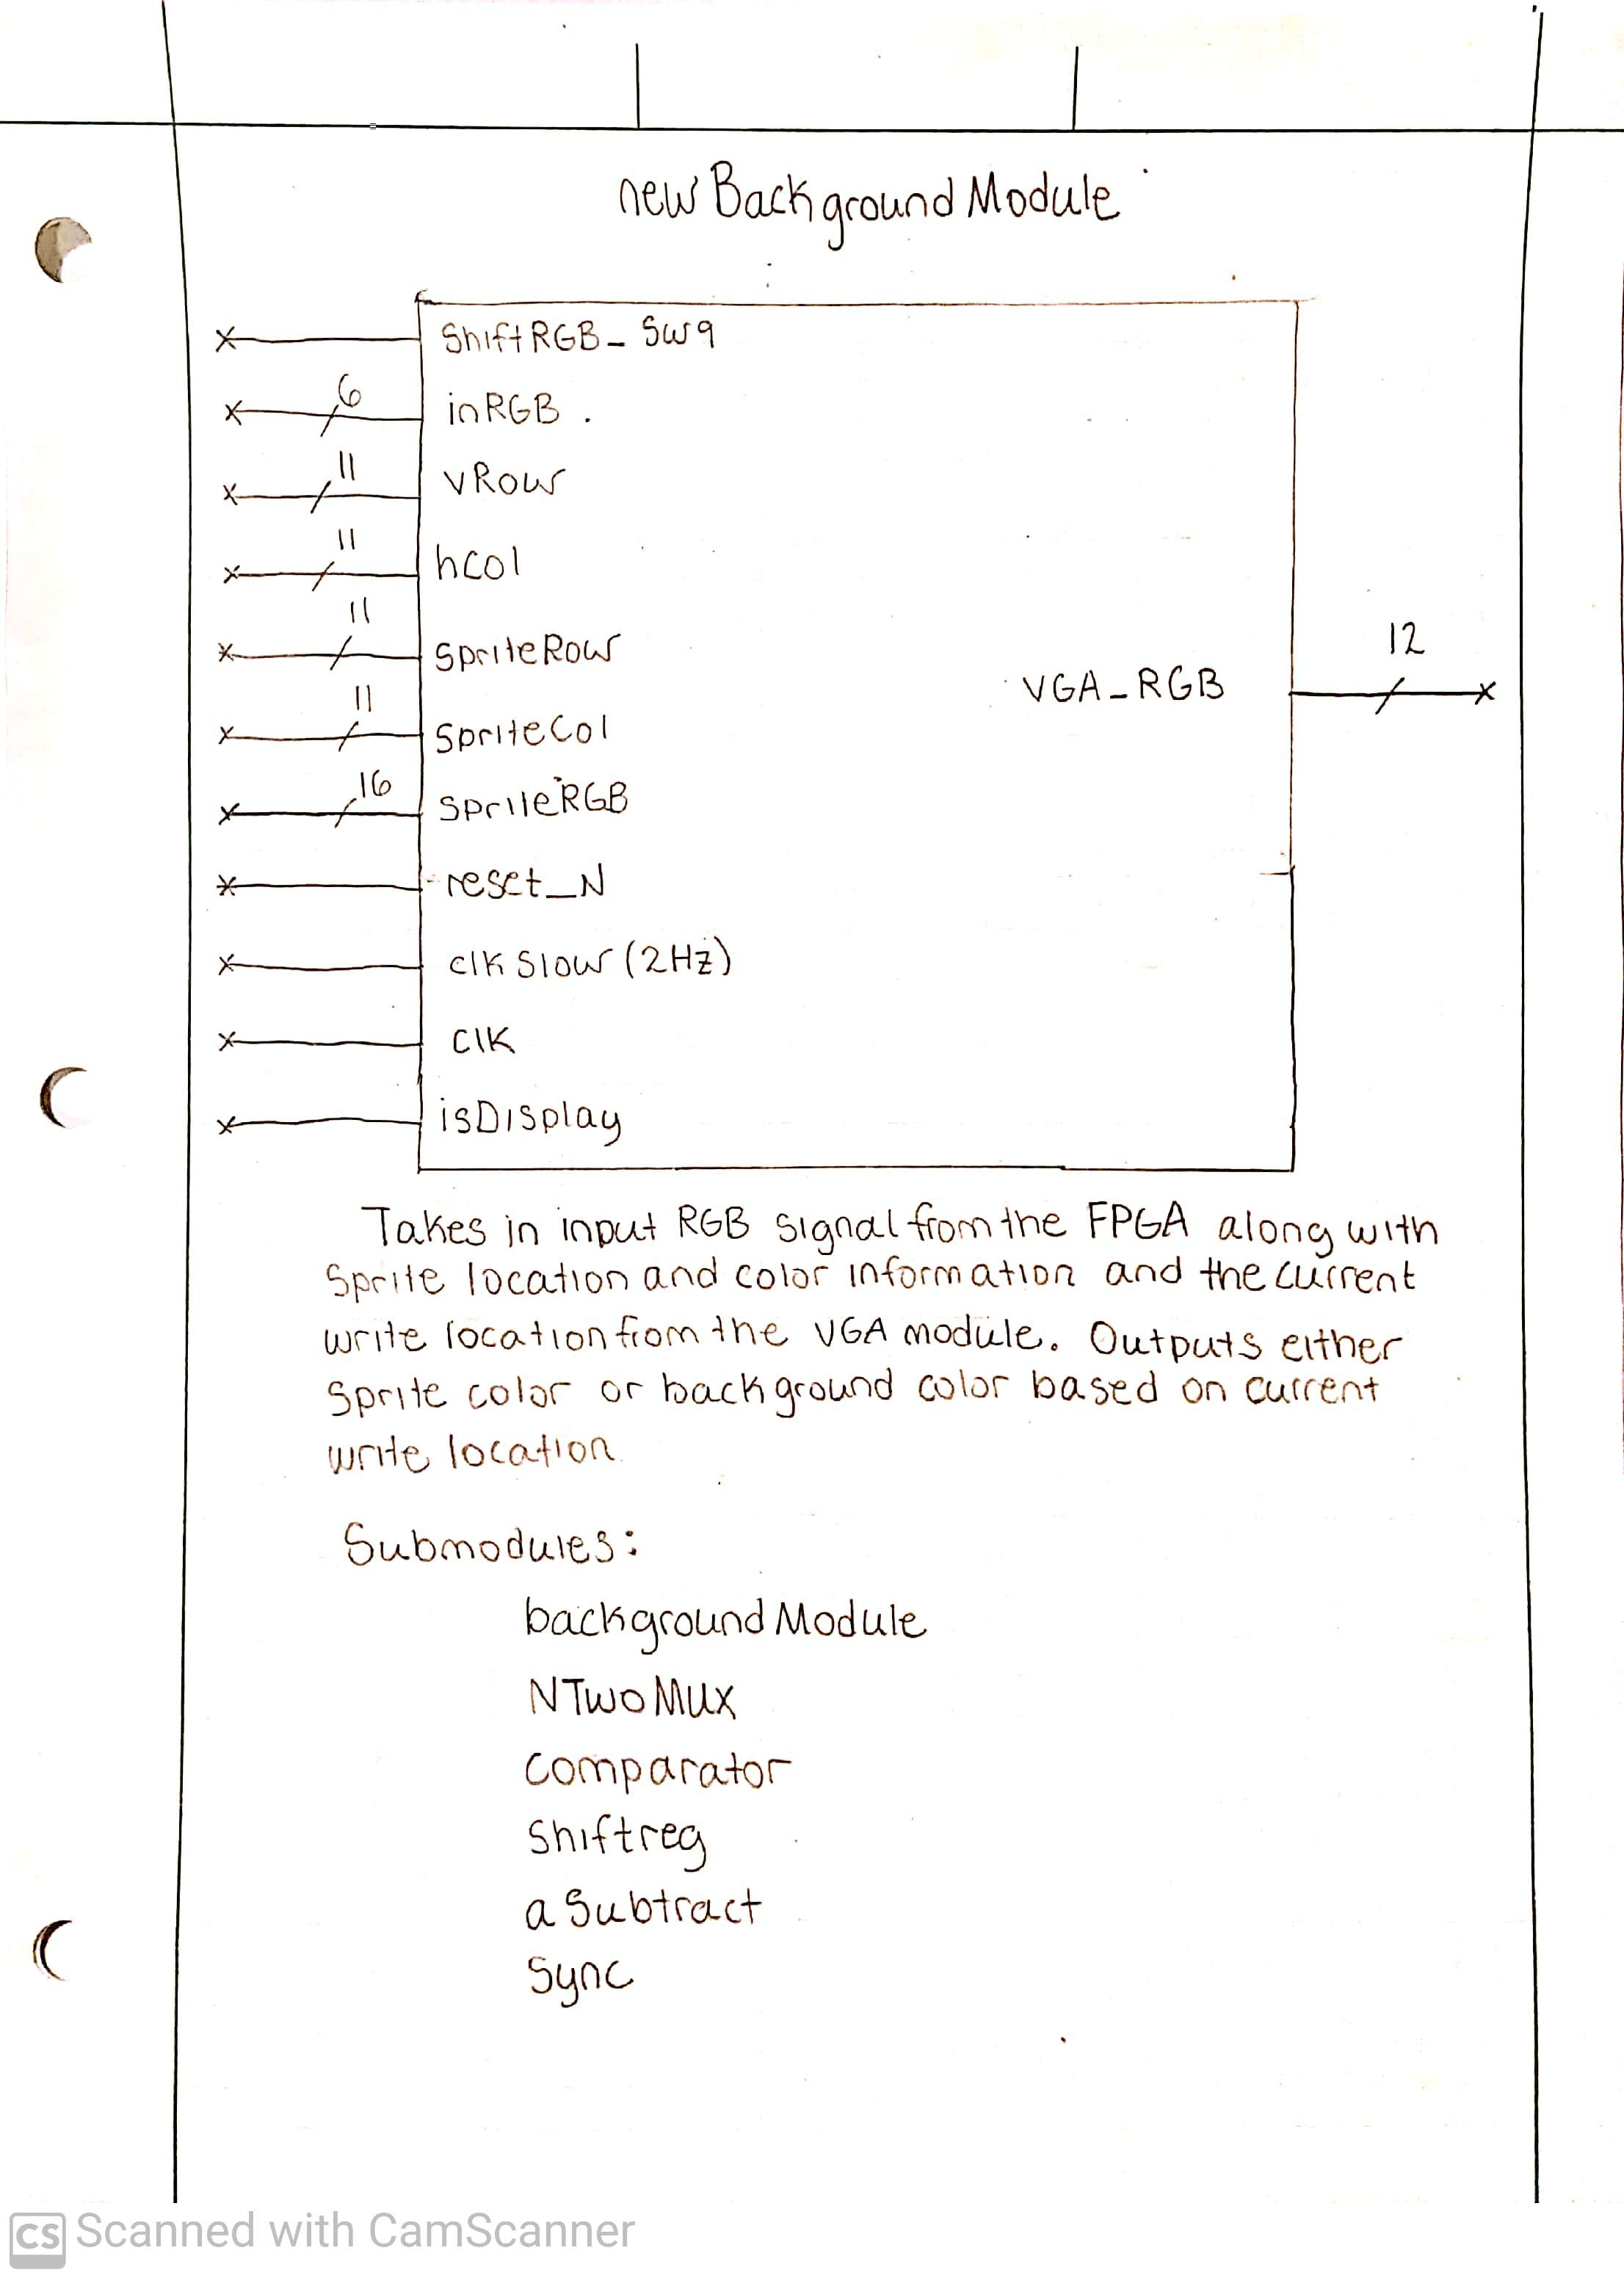 new Background Module
ShiftRGB_Sw9
6
inRGB
11
vRow
11
hCol
11
SpriteRow
11
SpriteCol
16
SpriteRGB
reset_N
clkSlow (2Hz)
clk
isDisplay
12
VGA_RGB
Takes in input RGB signal from the FPGA along with
Sprite location and color information and the current
write location from the VGA module. Outputs either
Sprite color or background color based on current
write location
Submodules:
backgroundModule
NTwoMux
Comparator
Shiftreg
aSubtract
Sync
CS Scanned with CamScanner